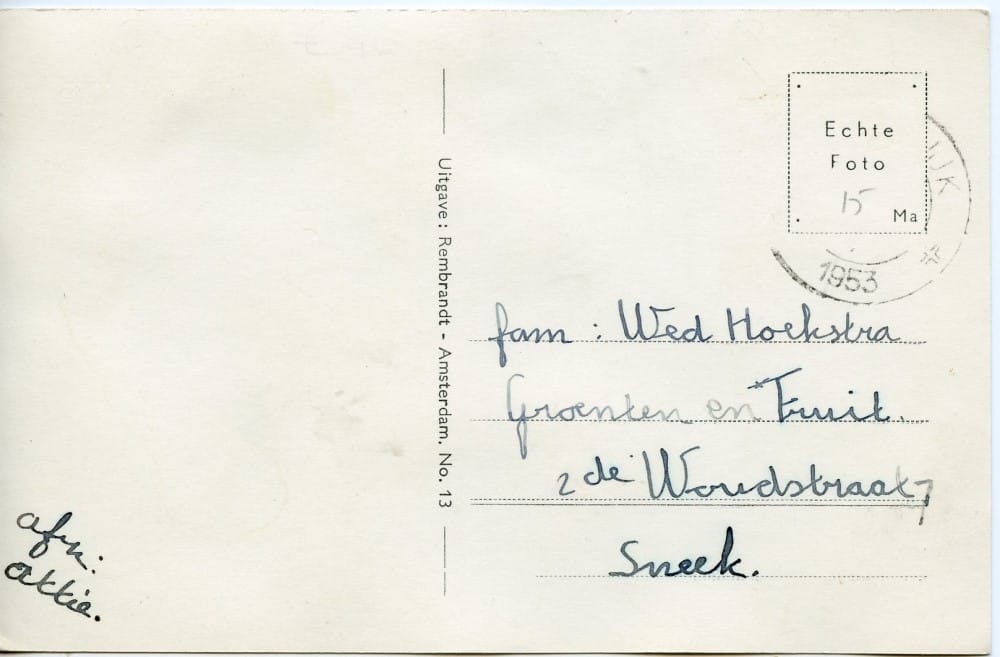 Echte
Foto
15
Ma
IJK
1953
Uitgave: Rembrandt - Amsterdam. No. 13
fam: Wed Hoekstra
Groenten en Fruit.
2de Woudstraat
Sneek.
afz:
Akkie.